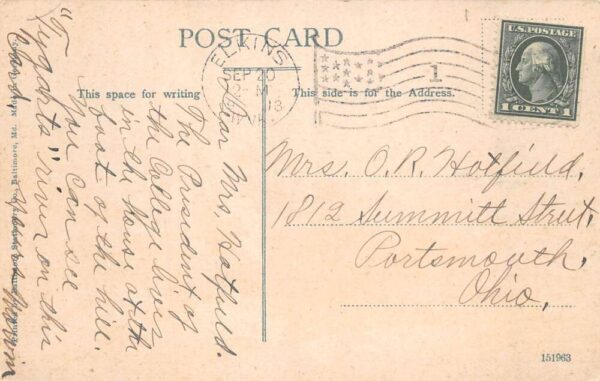 POST CARD
This space for writing
This side is for the Address.
ELKINS
SEP 20
M
13
1
U.S. POSTAGE
1 CENT 1
Dear Mrs. Hatfield.
The President of
the College lives
in the house at the
foot of the hill.
You can see
"Tygarts" river on this
Card.
Mrs. O. R. Hatfield,
1812 Summitt Street,
Portsmouth,
Ohio,
Baltimore, Md.
151963